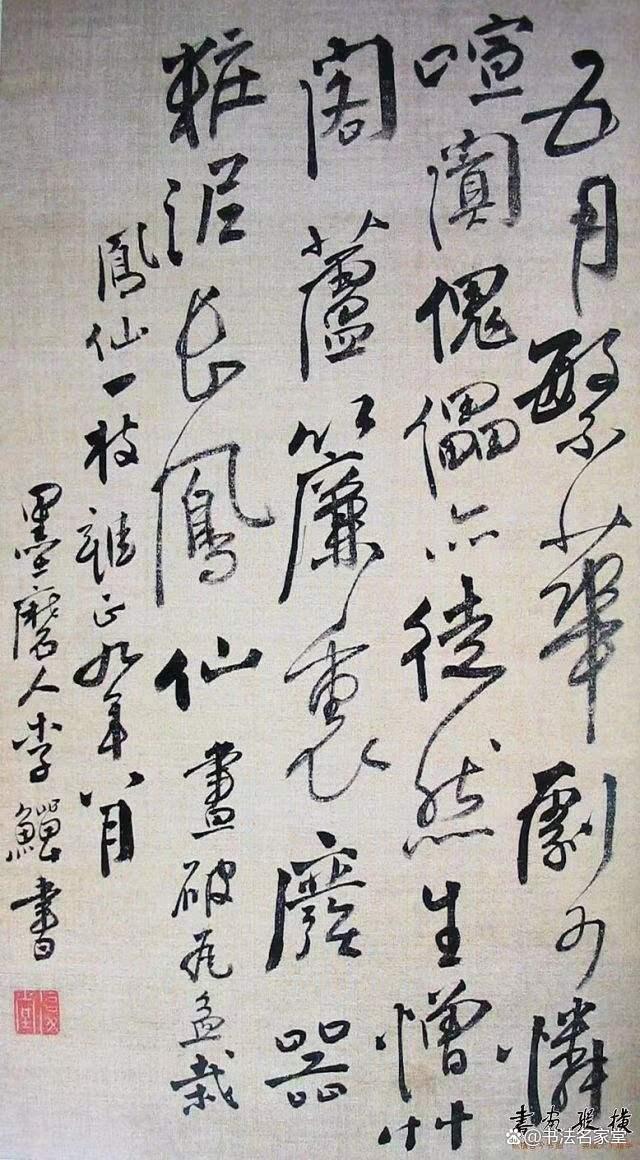 五月繁華劇可憐
喧闐傀儡亦徒然生憎艸
閣蘆簾裏廢器
粧長鳳仙 畫破瓦盆栽
鳳仙一枝雍正九年八月
墨磨人李鱓書
書畫縱橫
书法名家堂